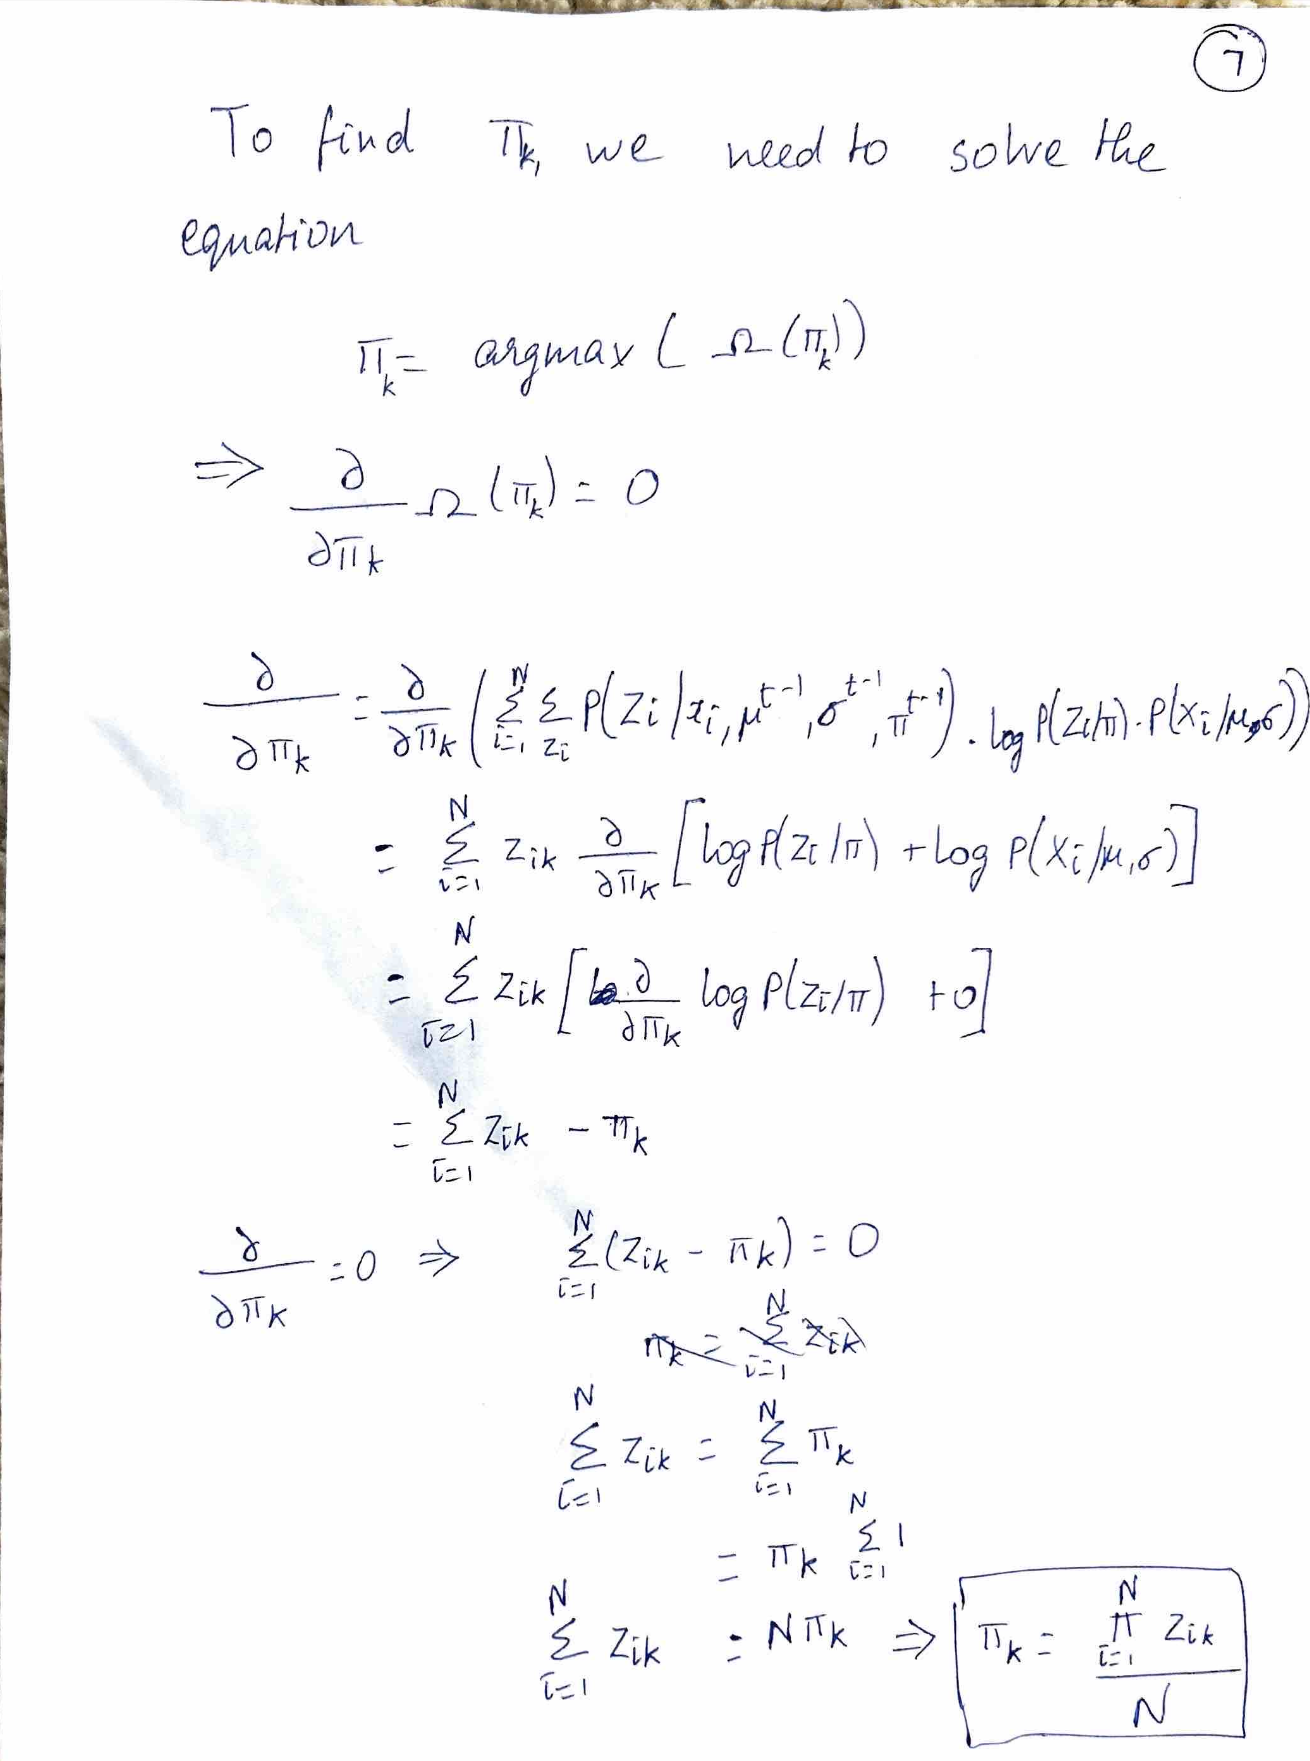 7
To find πₖ, we need to solve the
equation
πₖ = argmax ( Ω (πₖ))
⇒ ∂/∂πₖ Ω (πₖ) = 0
∂/∂πₖ = ∂/∂πₖ ( Σ_{i=1}^{N} Σ_{zi} P(Zi /xi, μ^{t-1}, σ^{t-1}, π^{t-1}) . log P(Zi/π) . P(Xi /μ,σ))
= Σ_{i=1}^{N} Zik ∂/∂πk [log P(Zi /π) + log P(Xi /μ,σ)]
= Σ_{i=1}^{N} Zik [ ∂/∂πk log P(Zi/π) + 0]
= Σ_{i=1}^{N} Zik - πk
∂/∂πk = 0 ⇒ Σ_{i=1}^{N} (Zik - πk) = 0
πk = Σ_{i=1}^{N} Zik
Σ_{i=1}^{N} Zik = Σ_{i=1}^{N} πk
= πk Σ_{i=1}^{N} 1
Σ_{i=1}^{N} Zik = Nπk ⇒ πk = π_{i=1}^{N} Zik / N